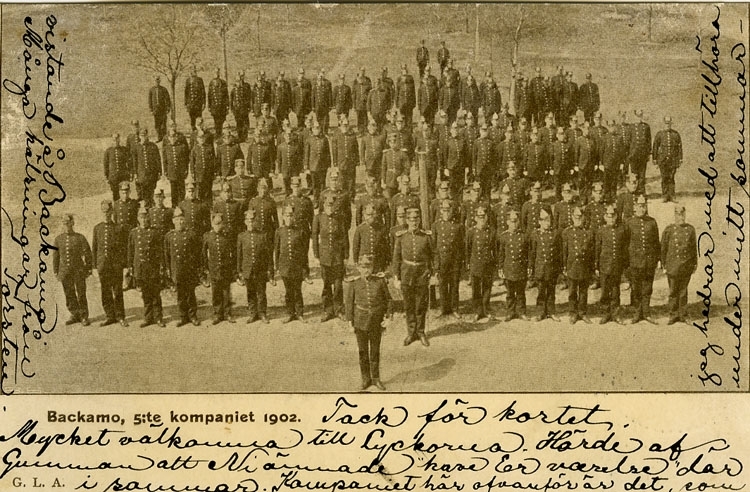 Backamo, 5:te kompaniet 1902.
Tack för kortet,
Mycket välkomna till Lyckorna. Hörde af
Gumman att Ni ämnade hava Er værelse där
G. L. A.
i sommar. Kompaniet här ofvanför är det, som
jag hedrar med att tillhöra
under mitt sommar-
vistande å Backamo.
Många hälsningar från
Torsten